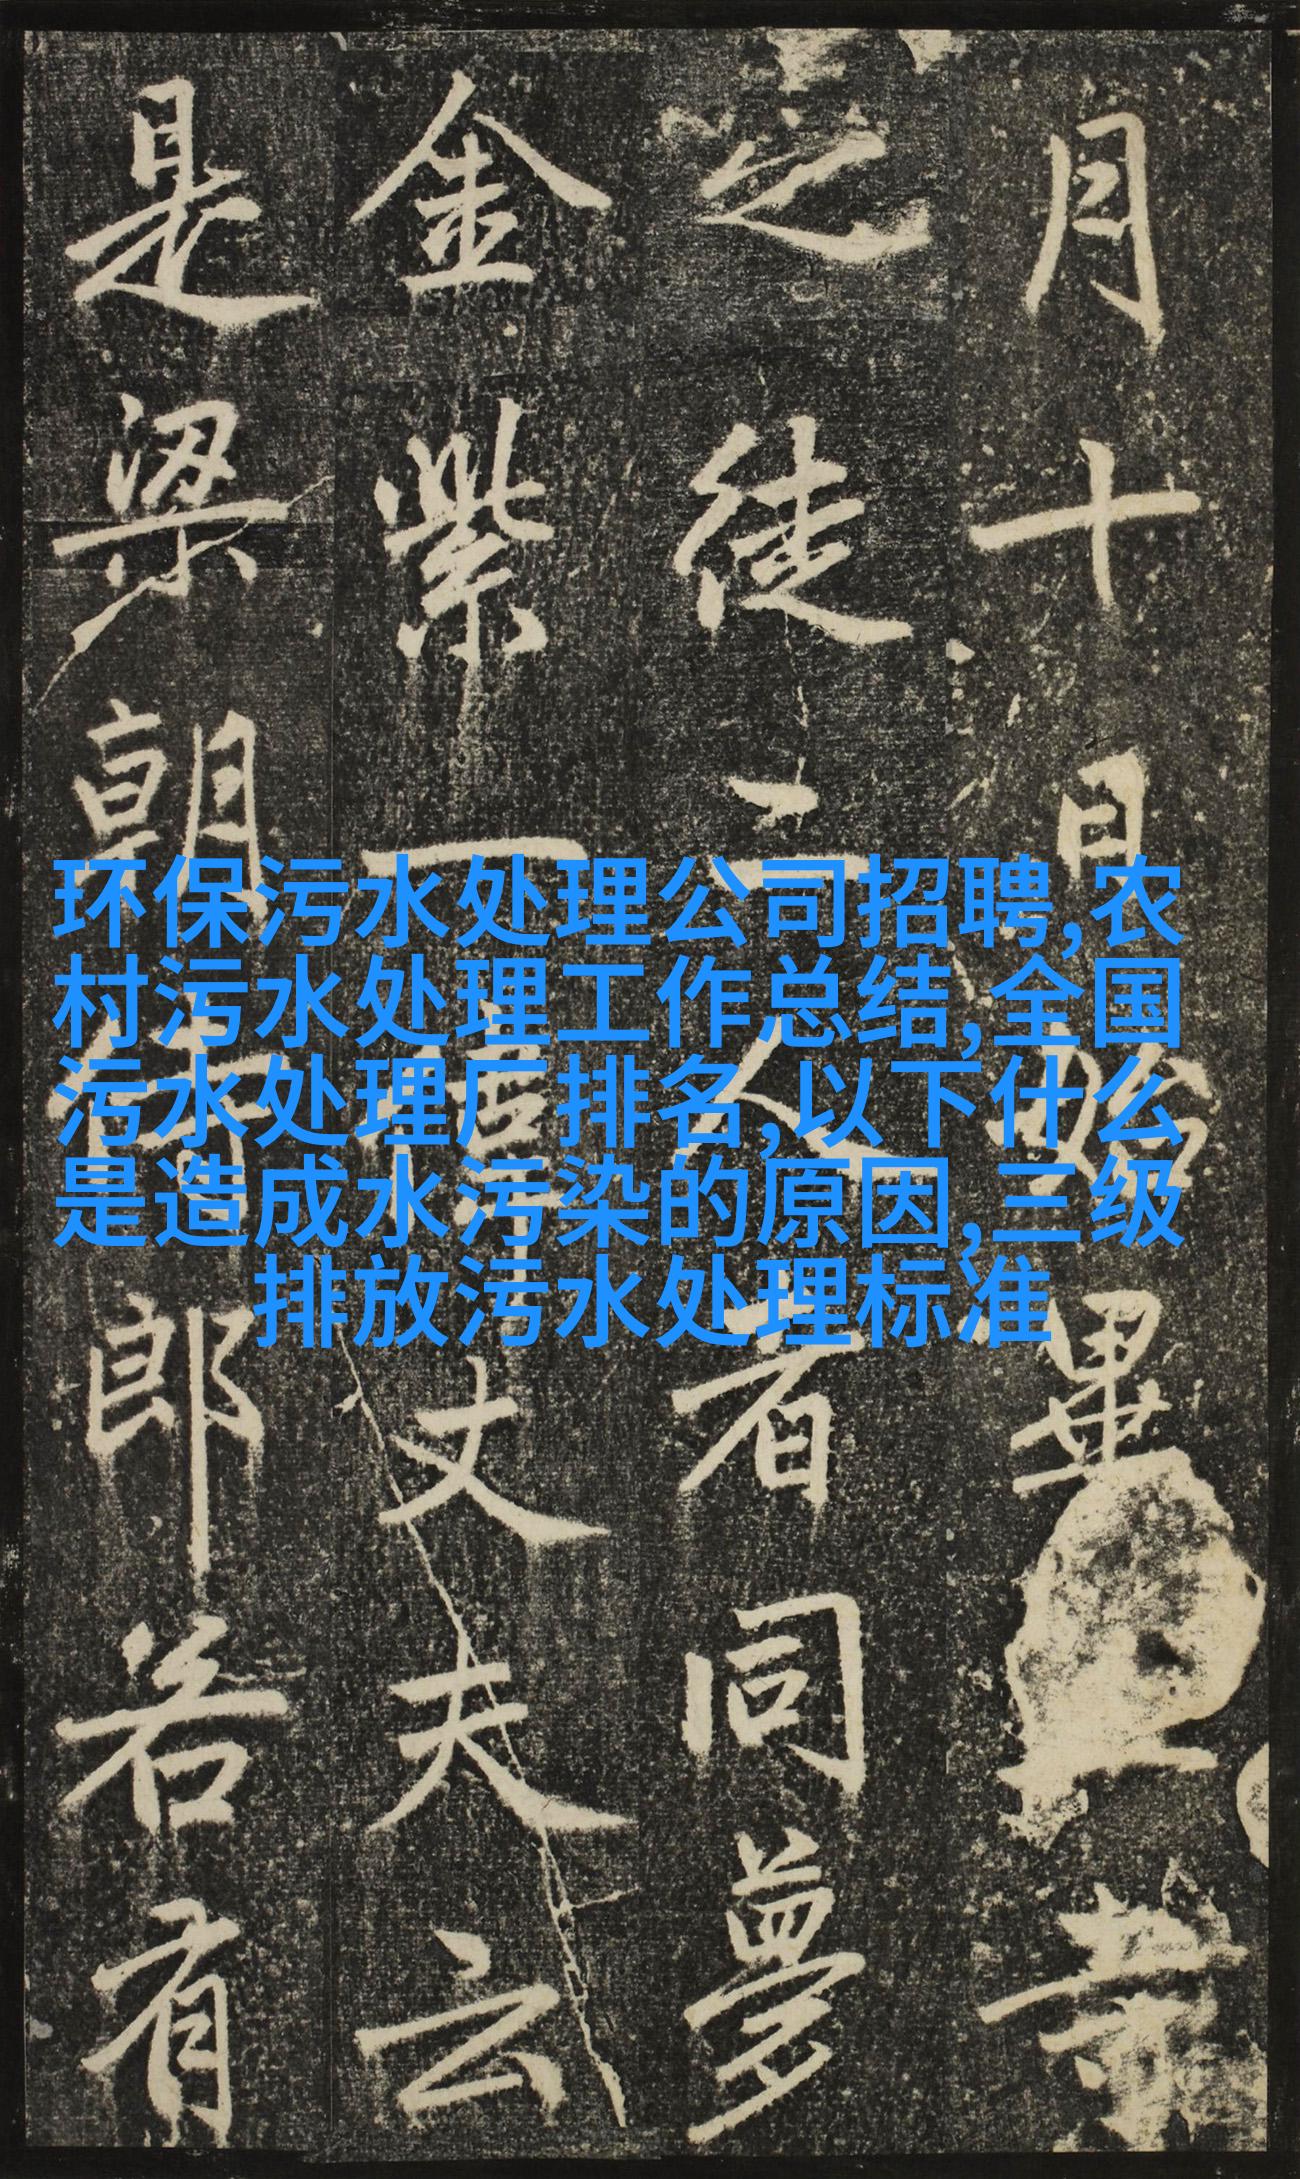 月十日始畢
之徒二人者同夢
金紫一偉丈夫云
是梁朝郎若有
环保污水处理公司招聘,农
村污水处理工作总结,全国
污水处理厂排名,以下什么
是造成水污染的原因,三级
排放污水处理标准